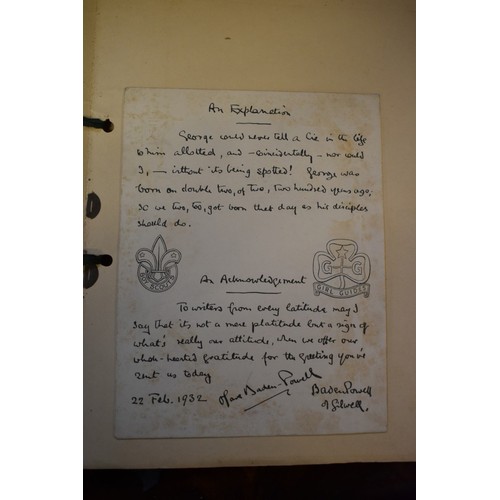 An Explanation
George could never tell a lie in the life
to him allotted, and - coincidentally - nor could
I, - without its being spotted! George was
born on double two, of two, two hundred years ago;
so we two, too, got born that day as his disciples
should do.
BOY SCOUTS
GIRL GUIDES
An Acknowledgement
To writers from every latitude may I
say that its not a mere platitude but a sign of
what's really our attitude, when we offer our
whole-hearted gratitude for the greeting you've
sent us today
22 Feb. 1932 Olave Baden-Powell Baden Powell
of Gilwell.